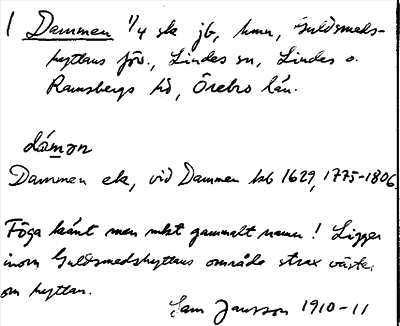 1 Dammen 1/4 sk jb, hmn, Guldsmeds-
hyttans förs., Lindes sn, Lindes o.
Ramsbergs hd, Örebro län.
dámən
Dammen ek, vid Dammen kb 1629, 1775-1806.
Föga känt men mkt gammalt namn! Ligger
inom Guldsmedshyttans område strax väster
om hyttan.
Sam Jansson 1910-11